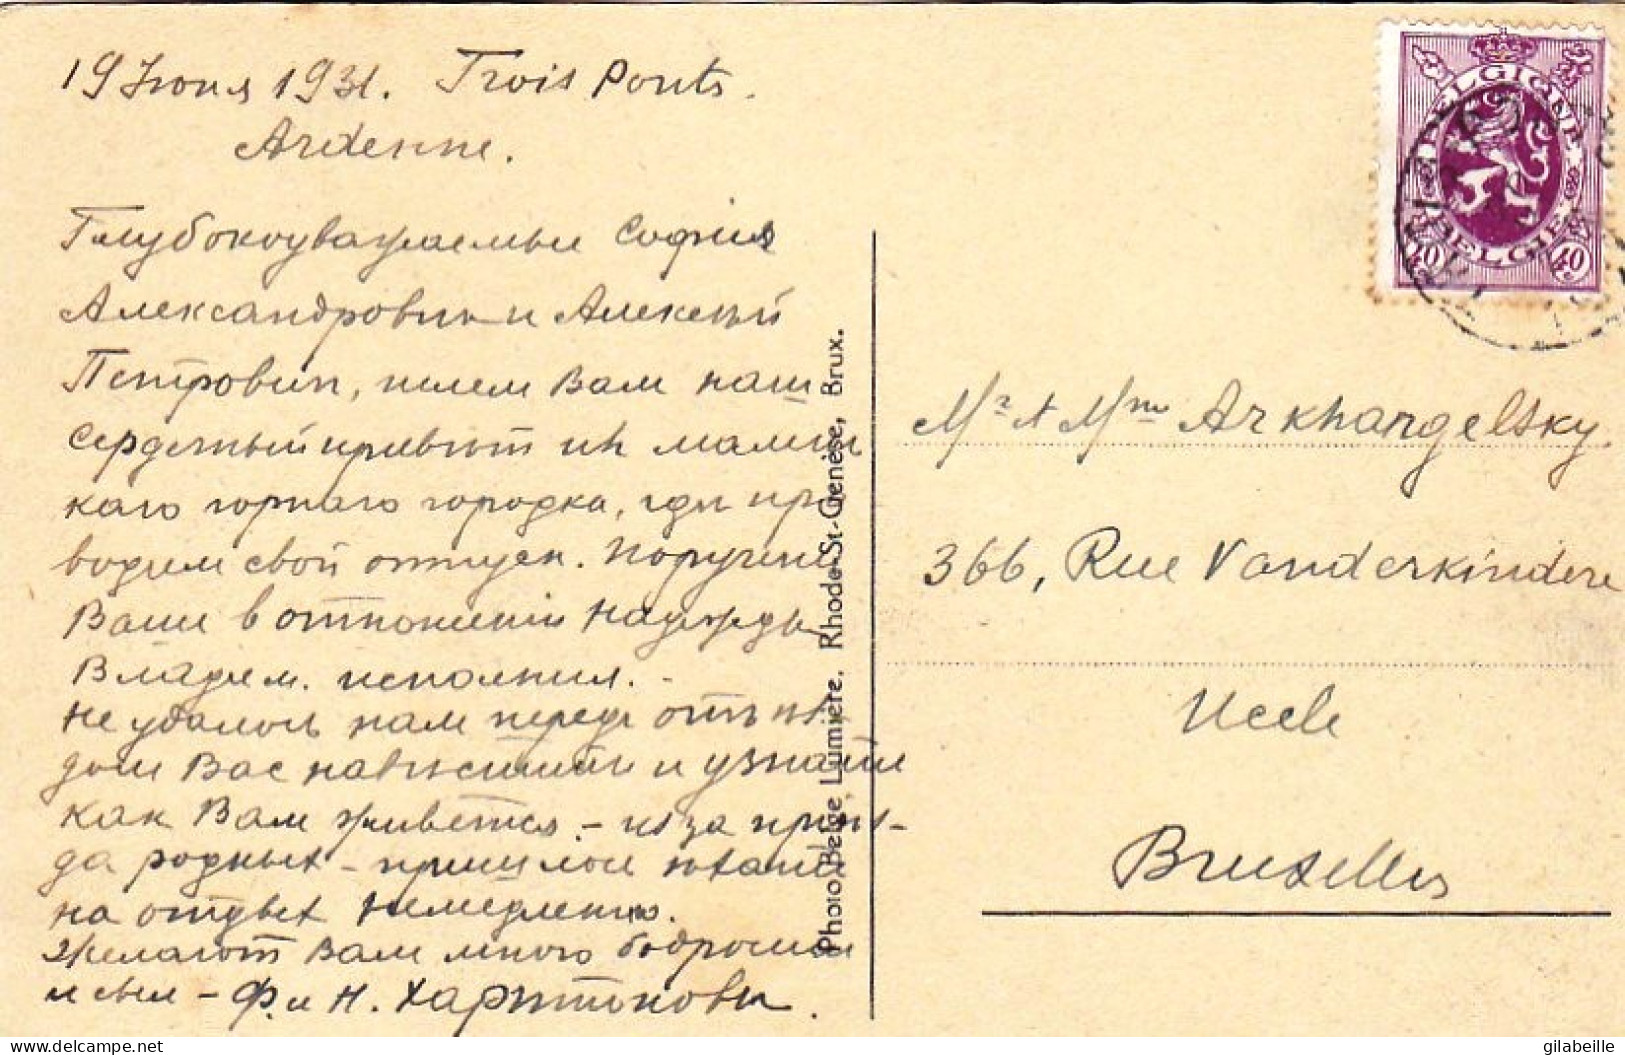 19 Июня 1931. Trois Ponts.
Ardenne.
Глубокоуважаемые София
Александровна и Алексей
Петрович, шлем Вам наш
сердечный привет из мален
каго горнаго городка, где про
водим свой отпуск. Поручение
Ваше в отношении Надежды
Владим. исполнил. -
Не удалось нам перед отъез-
дом Вас навестить и узнать
как Вам живется - из за приез-
да родных - пришлось ехать
на отдых немедленно.
Желают Вам много бодрости
и сил - Ф. и Н. Харитоновы.
Photo Belge Lumière, Rhode-St-Genèse, Brux.
BELGIQUE
BELGIË
40 40
Mr & Mme Arkhangelsky
366, Rue Vanderkindere
Uccle
Bruxelles
https://www.delcampe.net
gilabeille